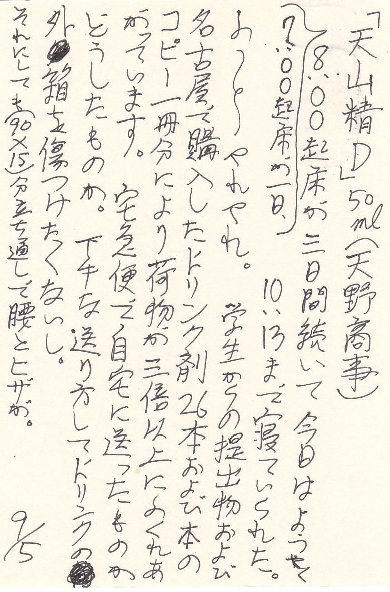 「天山精D」50ml(天野商事)
8:00起床が三日間続いて 今日はようやく
7:00起床が一日、 10:13まで寝ていられた。
やれやれ。 学生からの提出物および
名古屋で購入したドリンク剤26本および本の
コピー一冊分により荷物が三倍以上にふくれあ
がっています。 宅急便で自宅に送ったものか
どうしたものか。 下手な送り方してドリンクの
外箱を傷つけたくないし。
それにしても(90×15)分立ち通しで腰とヒザが。
9/5